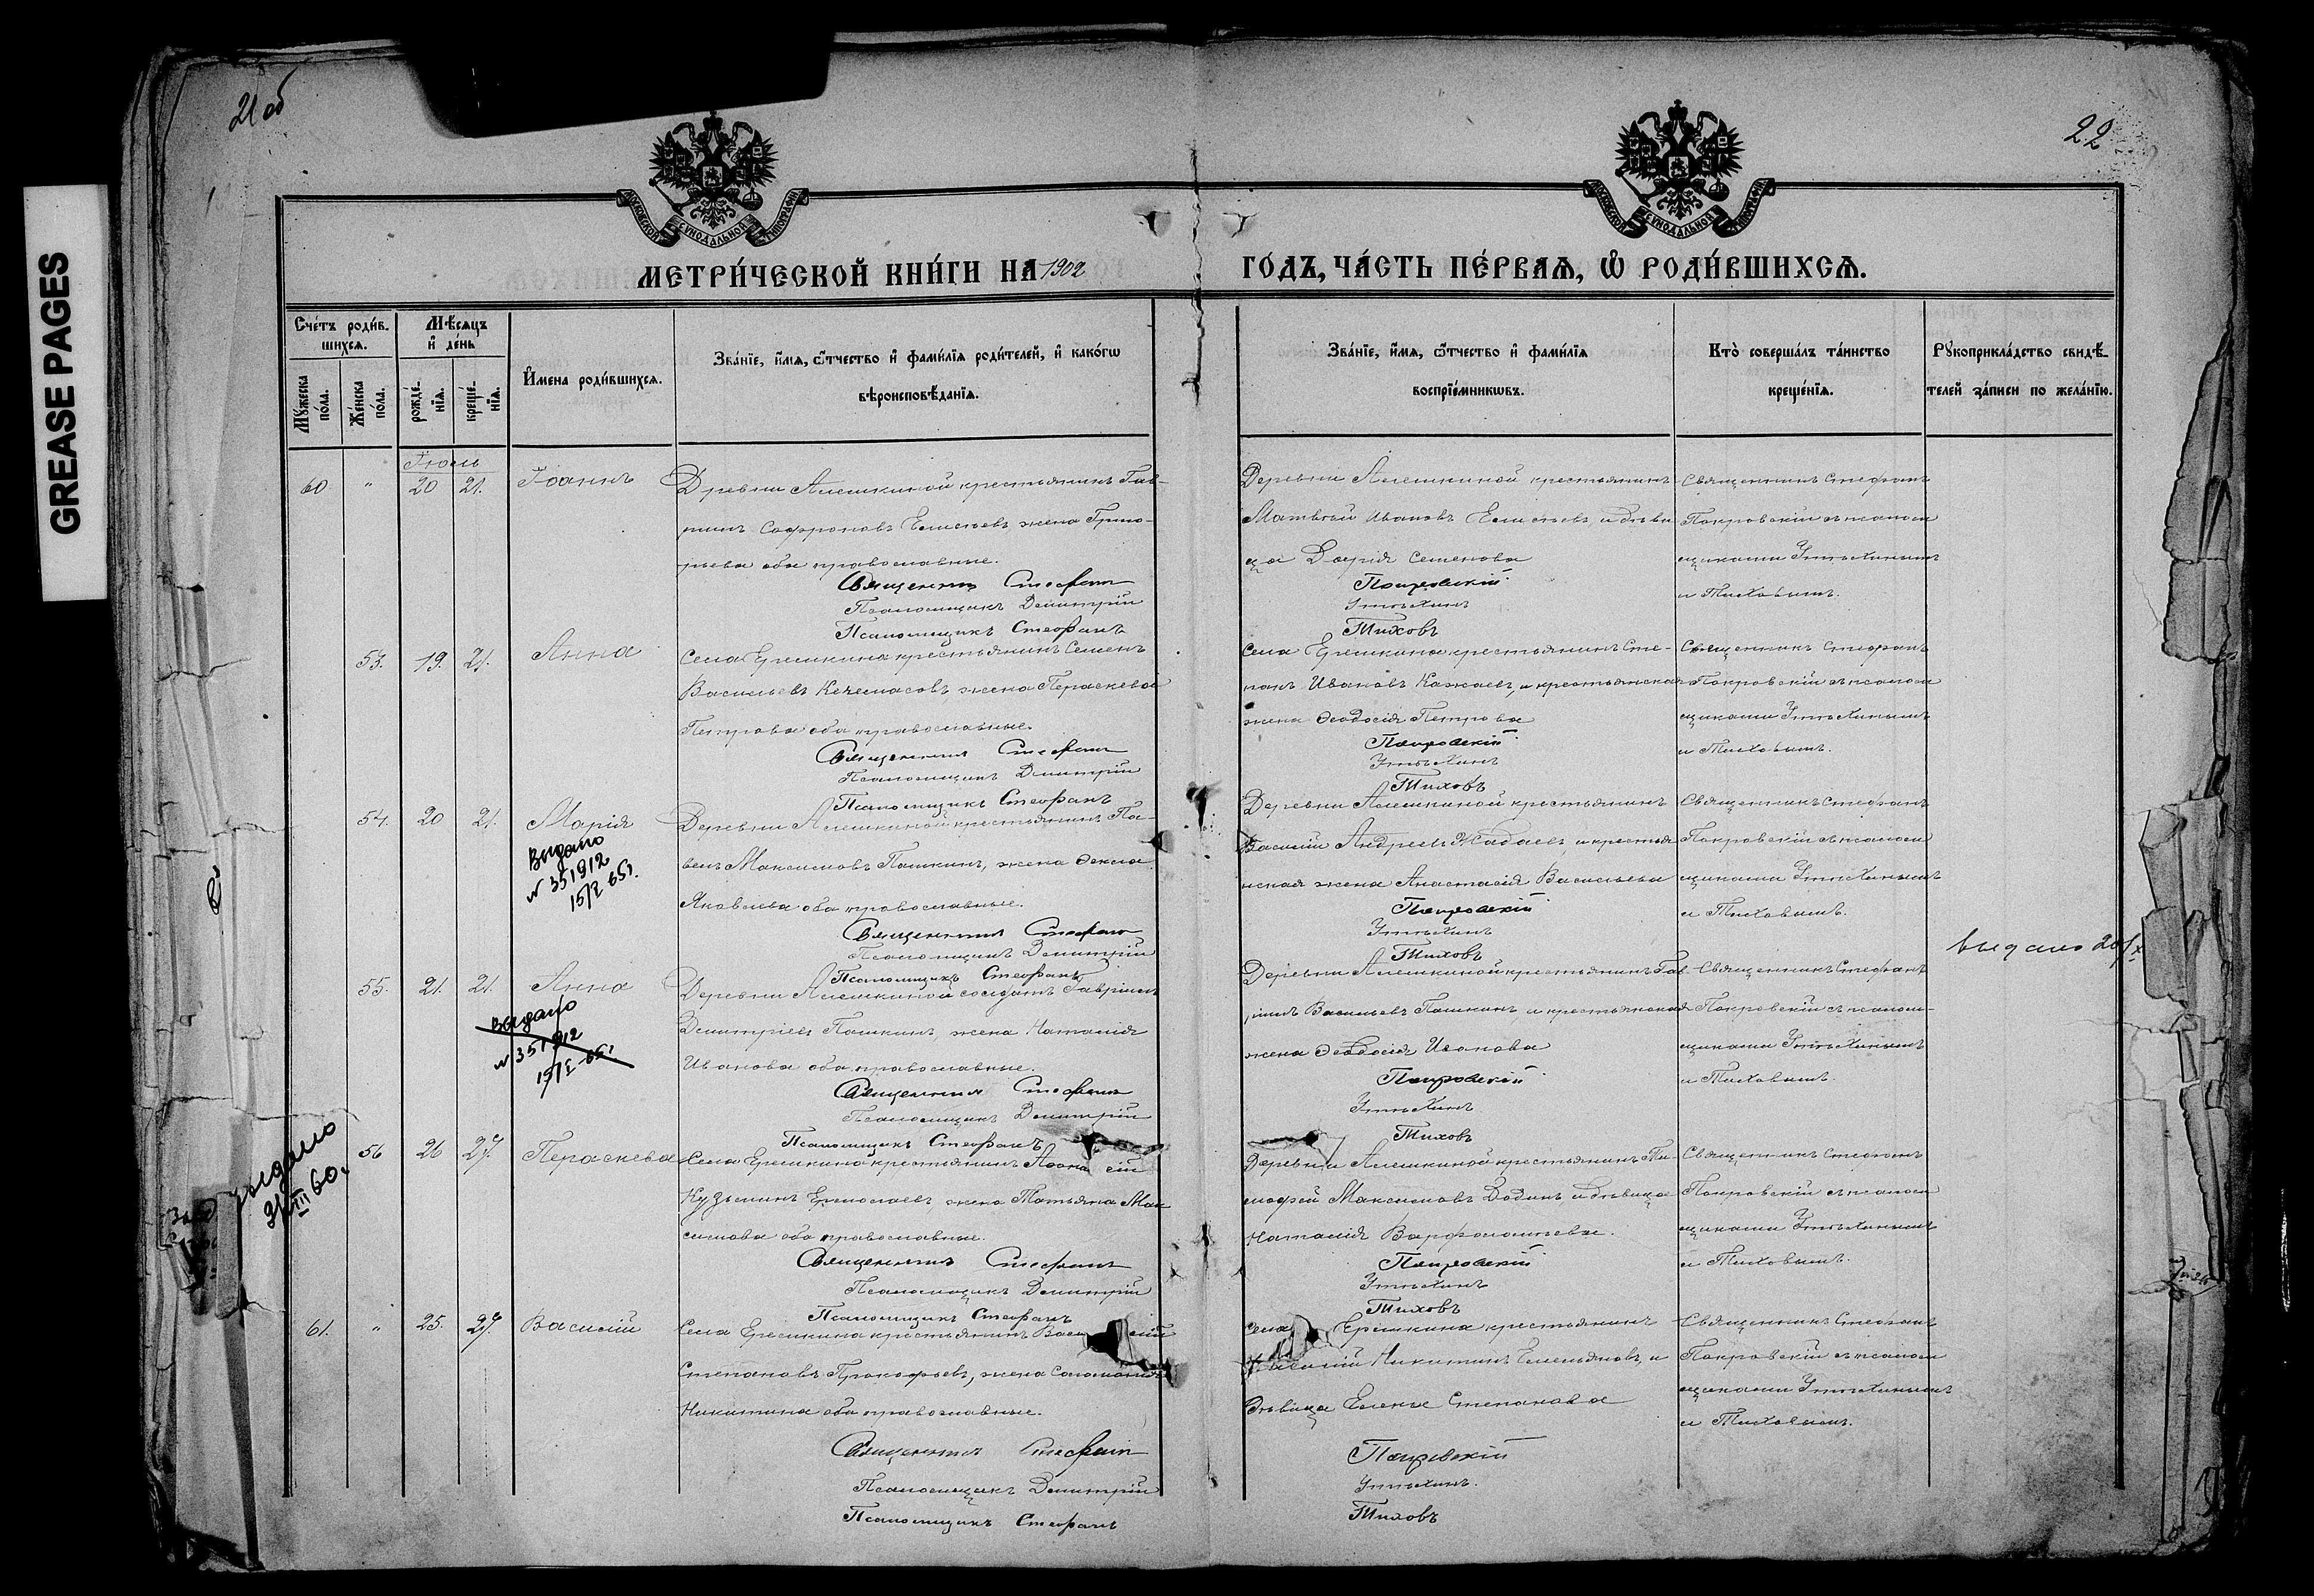 GREASE PAGES
21 об
22
МОСКОВСКОЙ СУНОДАЛЬНОЙ ТИПОГРАФІИ
МОСКОВСКОЙ СУНОДАЛЬНОЙ ТИПОГРАФІИ
МЕТРИ́ЧЕСКОЙ КНИ́ГИ НА 1902 ГО́ДЪ, ЧА́СТЬ ПЕ́РВАѦ, Ѡ҆ РОДИ́ВШИХСѦ.
Сче́тъ роди́в.
шихсѧ.
Мꙋ́жеска по́ла.
Же́нска по́ла.
Мѣ́сѧцъ
и҆ де́нь
рожде́нїѧ.
креще́нїѧ.
И҆́мена роди́вшихсѧ.
Зва́нїе, и҆́мѧ, ѻ҆́тчество и҆ фами́лїѧ роди́телей, и҆ како́гѡ
вѣроисповѣ́данїѧ.
Зва́нїе, и҆́мѧ, ѻ҆́тчество и҆ фами́лїѧ
воспрїе́мникѡвъ.
Кто̀ соверша́лъ та́инство
креще́нїѧ.
Рꙋкоприкла́дство свидѣ́-
телей за́писи по жела́нїю.
Іюль
60 " 20 21. Іоаннъ
Древни Алешкиной крестьянинъ Гав-
ріилъ Софроновъ Елисѣевъ жена Григо-
рьева оба православные.
Священникъ Стефанъ
Псаломщикъ Димитрій
Псаломщикъ Стефанъ
Деревни Алешкиной крестьянинъ
Матвѣй Ивановъ Елисѣевъ и дѣви
ца Дарія Семенова
Покровскій
Утѣхинъ
Тиховъ
Священникъ Стефанъ
Покровскій съ псалом
щиками Утѣхинымъ
и Тиховымъ.
53. 19. 21. Анна
Села Ерешкина крестьянинъ Семенъ
Васильевъ Кечемасовъ, жена Пераскева
Петрова оба православные.
Священникъ Стефанъ
Псаломщикъ Димитрій
Псаломщикъ Стефанъ
Села Ерешкина крестьянинъ Сте-
панъ Ивановъ Кажаевъ, и крестьянская
жена Ѳеодосія Петрова
Покровскій
Утѣхинъ
Тиховъ
Священникъ Стефанъ
Покровскій съ псалом
щиками Утѣхинымъ
и Тиховымъ.
54. 20 21. Марія
Выдано
N 351912
15/I 651.
Деревни Алешкиной крестьянинъ Па-
велъ Максимовъ Пашкинъ, жена Ѳекла
Яковлева оба православные.
Священникъ Стефанъ
Псаломщикъ Димитрій
Псаломщикъ Стефанъ
Деревни Алешкиной крестьянинъ
Василій Андреевъ Жадаевъ, и крестья
нская жена Анастасія Васильева
Покровскій
Утѣхинъ
Тиховъ
Священникъ Стефанъ
Покровскій съ псалом
щиками Утѣхинымъ
и Тиховымъ.
выдано
55. 21. 21. Анна
выдано
N 351912
15/I-651
Деревни Алешкиной солдатъ Гавріилъ
Димитріевъ Пашкинъ, жена Наталія
Иванова оба православные.
Священникъ Стефанъ
Псаломщикъ Димитрій
Псаломщикъ Стефанъ
Деревни Алешкиной крестьянинъ Гав-
ріилъ Васильевъ Пашкинъ, и крестьянская
жена Ѳеодосія Иванова
Покровскій
Утѣхинъ
Тиховъ
Священникъ Стефанъ
Покровскій съ псалом-
щиками Утѣхинымъ
и Тиховымъ.
выдано
56 26 27. Пераскева
Села Ерешкина крестьянинъ
Кузьминъ Ермолаевъ, жена Татьяна Мак
симова оба православные.
Священникъ Стефанъ
Псаломщикъ Димитрій
Псаломщикъ Стефанъ
Деревни Алешкиной крестьянинъ Ти-
мофей Максимовъ Додинъ и дѣвица
Наталія Варфоломеева.
Покровскій
Утѣхинъ
Тиховъ
Священникъ Стефанъ
Покровскій съ псалом
щиками Утѣхинымъ
и Тиховымъ.
61. " 25. 27. Василій
Села Ерешкина крестьянинъ Василій
Степановъ Прокофьевъ, жена Соломонія
Никитина оба православные.
Священникъ Стефанъ
Псаломщикъ Димитрій
Псаломщикъ Стефанъ
Села Ерешкина крестьянинъ
Василій Никитинъ Емельяновъ, и
Дѣвица Елена Степанова
Покровскій
Утѣхинъ.
Тиховъ
Священникъ Стефанъ
Покровскій съ псалом
щиками Утѣхинымъ
и Тиховымъ.